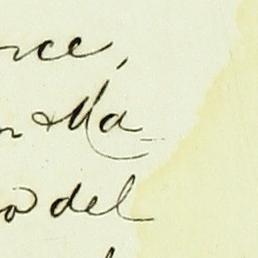 nce,
n Ma-
o del